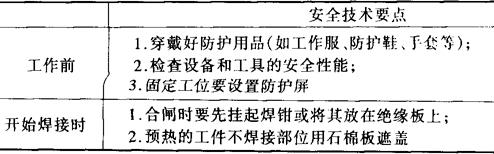 安全技术要点
工作前
1.穿戴好防护用品(如工作服、防护鞋、手套等);
2.检查设备和工具的安全性能;
3.固定工位要设置防护屏
开始焊接时
1.合闸时要先挂起焊钳或将其放在绝缘板上;
2.预热的工件不焊接部位用石棉板遮盖